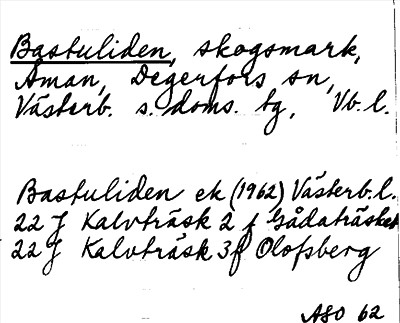 Bastuliden, skogsmark,
Åman, Degerfors sn,
Västerb. s. doms. tg, Vb. l.
Bastuliden ek (1962) Västerb. l.
22 J Kalvträsk 2 f Gådaträsket
22 J Kalvträsk 3f Olofsberg
ASO 62